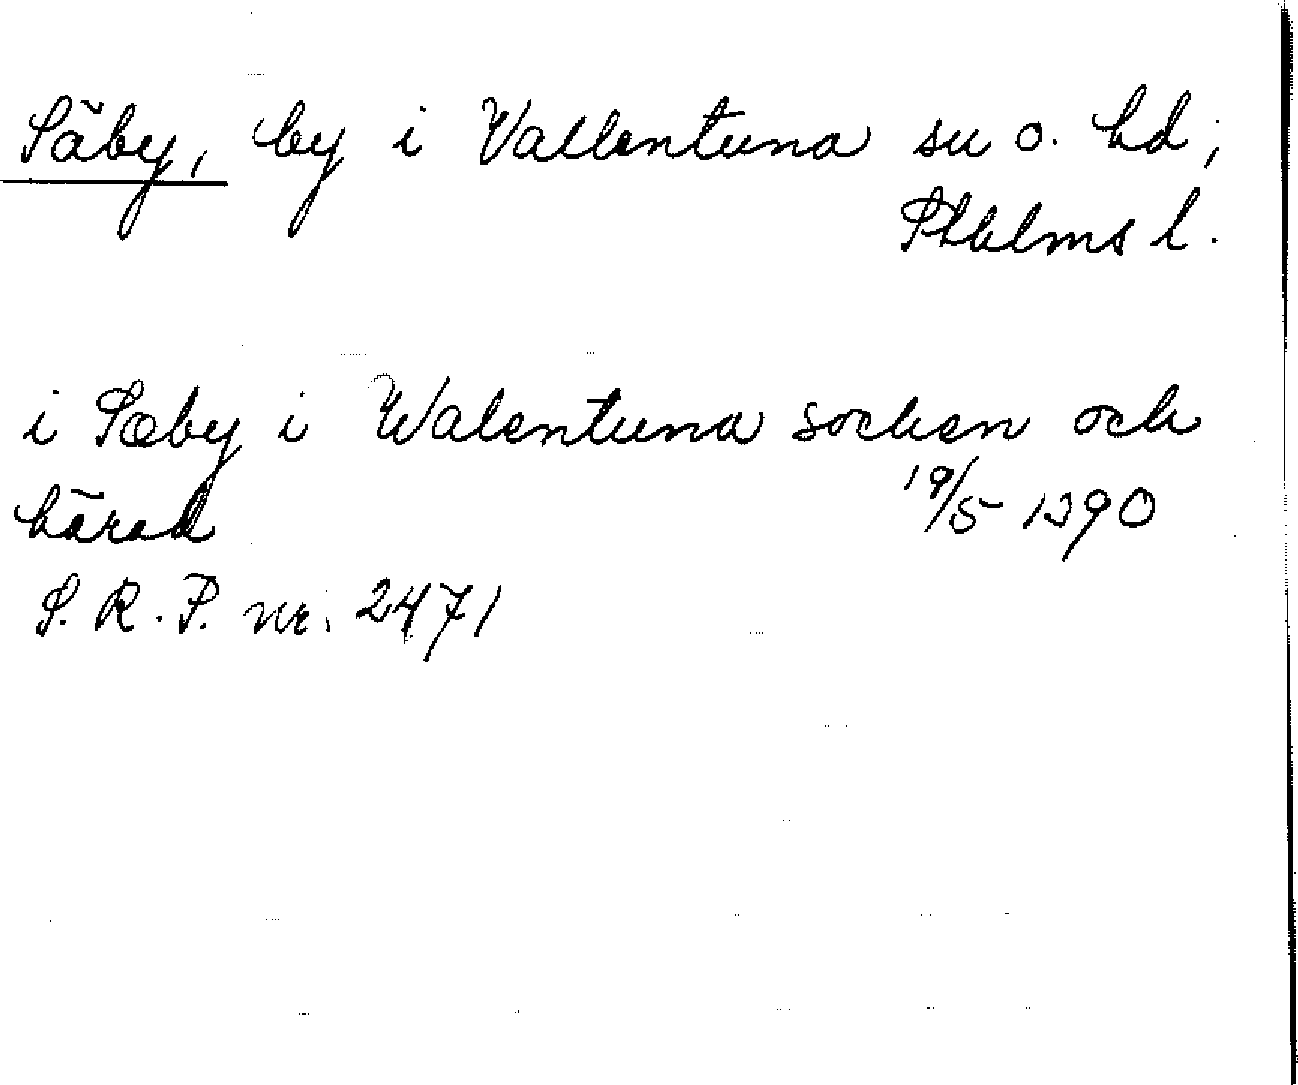 Säby, by i Vallentuna sn o. hd;
Sthlms l.
i Sæby i Walentuna socken och
härad 19/5 1390
S. R. P. nr. 2471